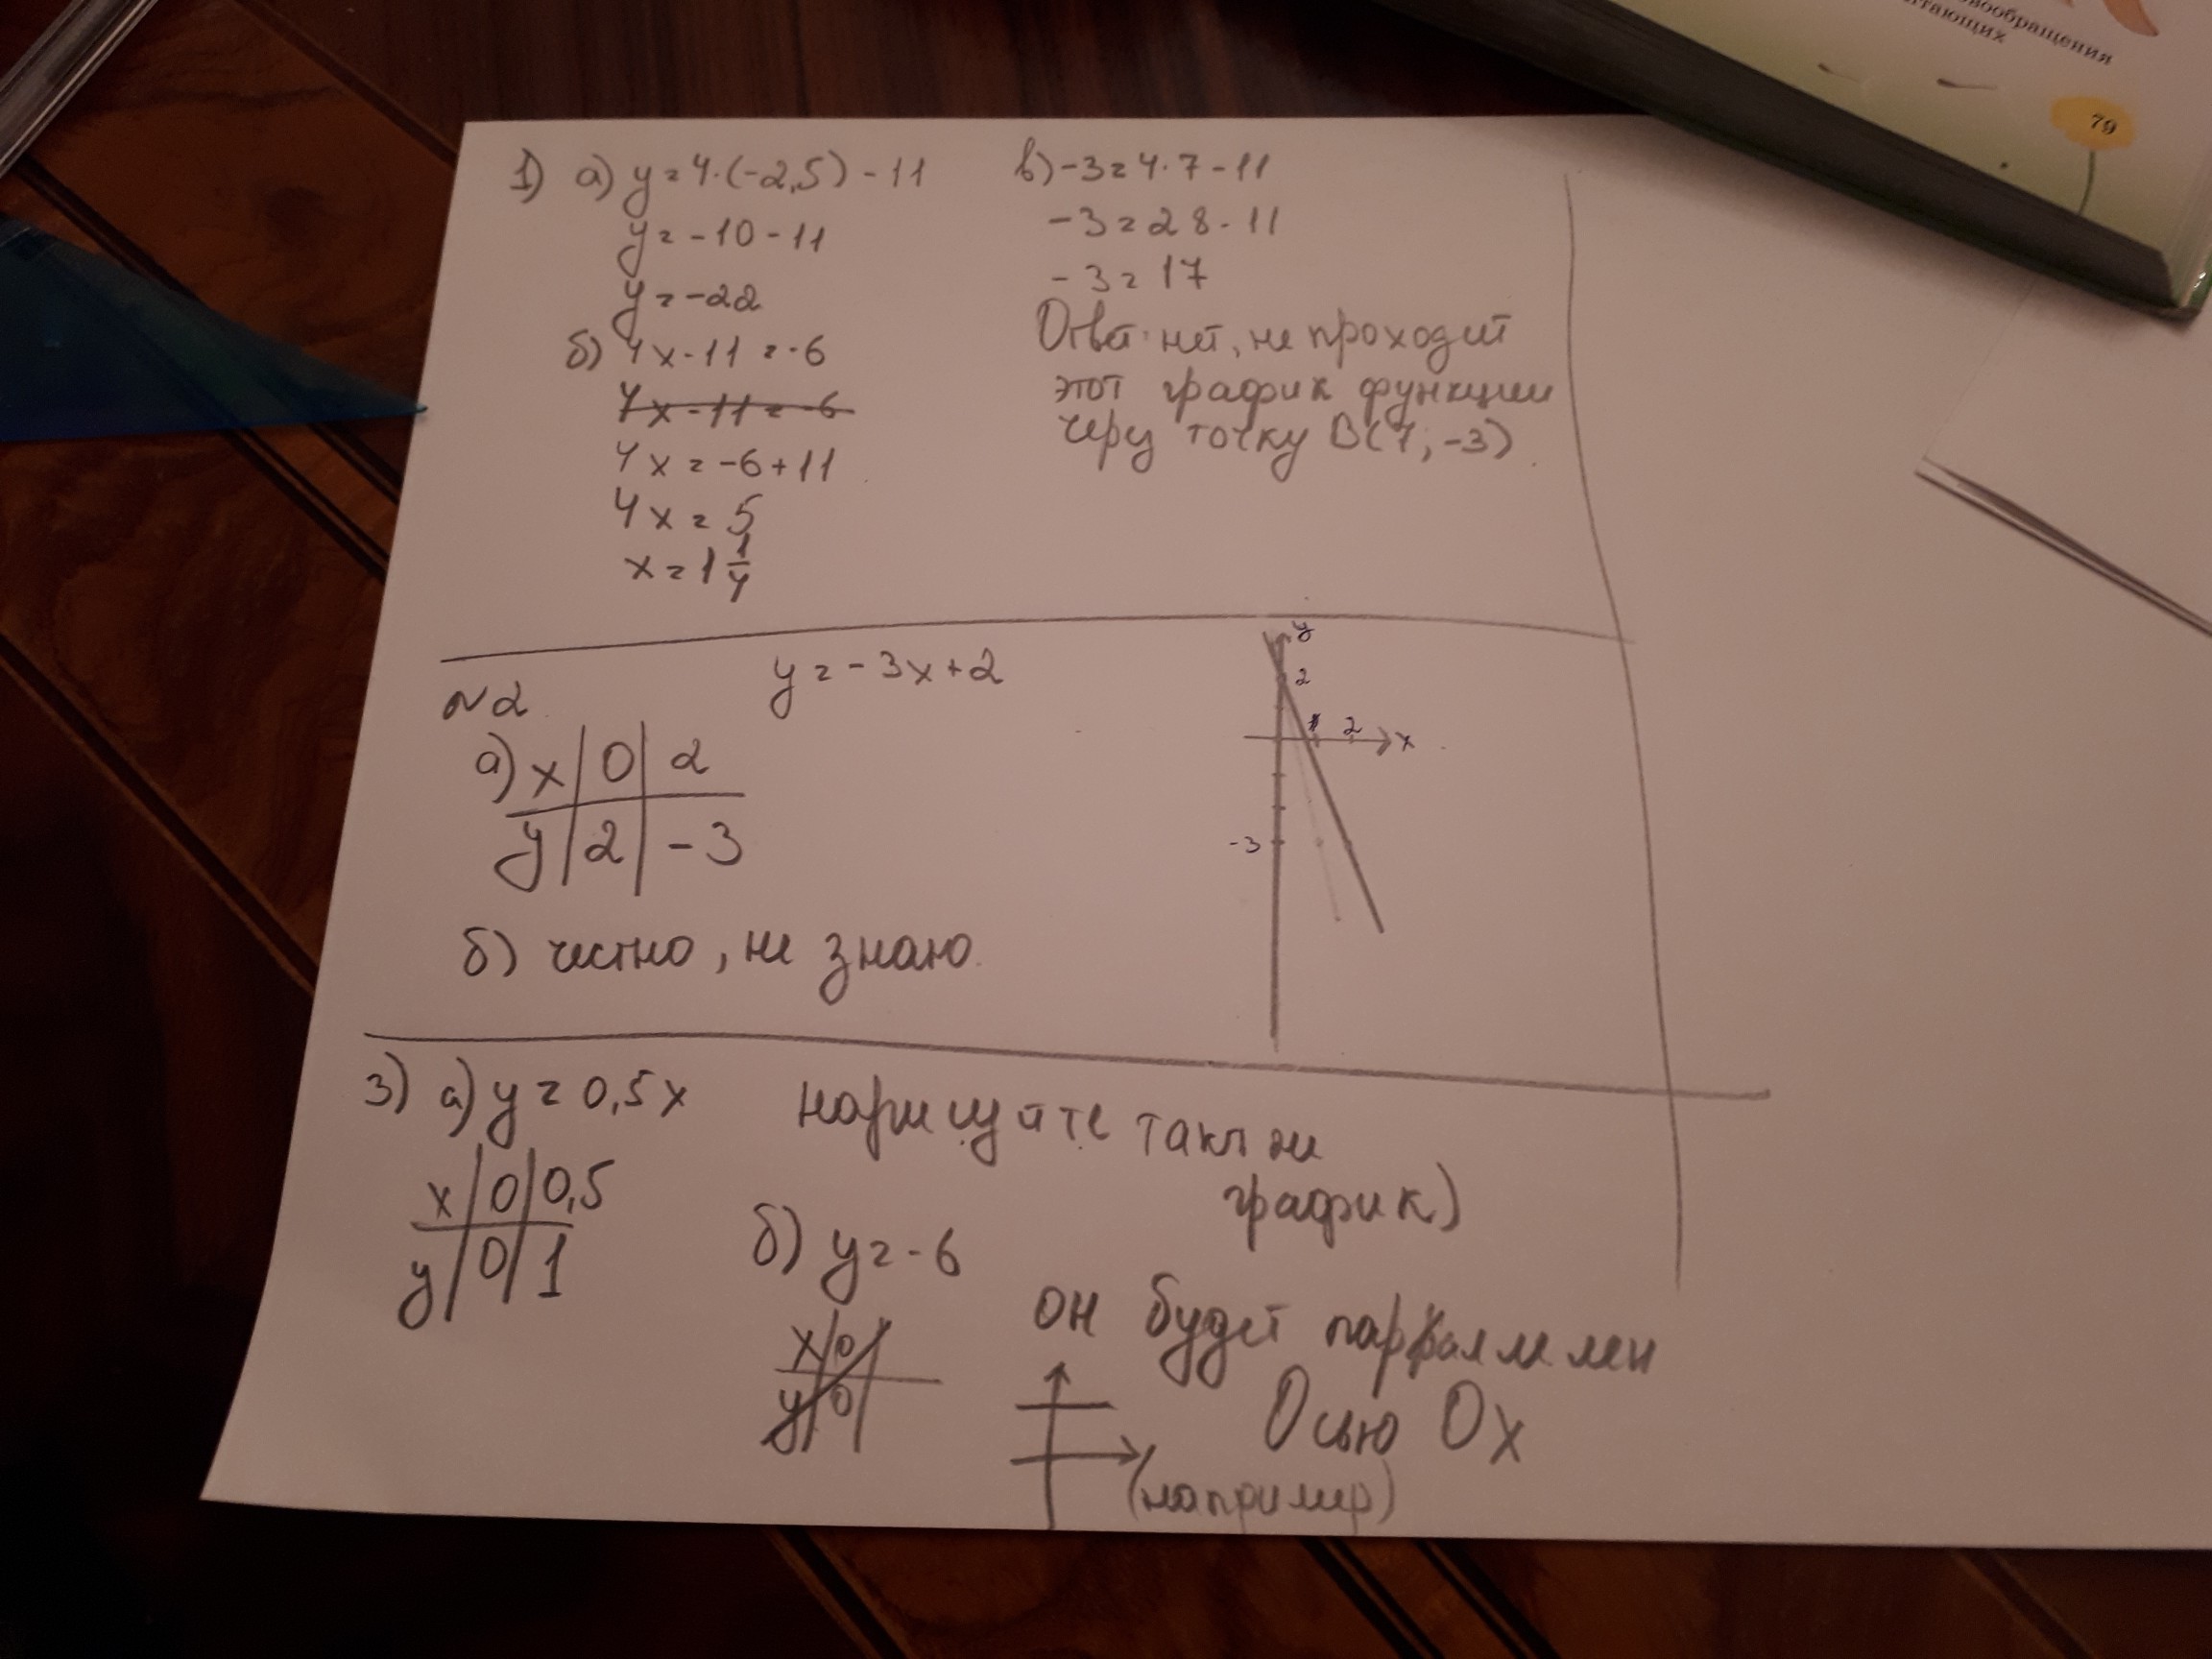 вообращения
тающих
79
1) а) y = 4·(-2,5) - 11
y = -10 - 11
y = -22
б) 4x - 11 = -6
4x - 11 = -6
4x = -6 + 11
4x = 5
x = 1 1/4
в) -3 = 4·7 - 11
-3 = 28 - 11
-3 = 17
Ответ: нет, не проходит
этот график функции
через точку B(7; -3).
№2
y = -3x + 2
а) x | 0 | 2
y | 2 | -3
б) честно, не знаю.
y
2
1 2 x
-3
3) а) y = 0,5x
x | 0 | 0,5
y | 0 | 1
нарисуйте такой же
график)
б) y = -6
x | 0
y | 0
он будет параллелен
Осью Ox
(например)